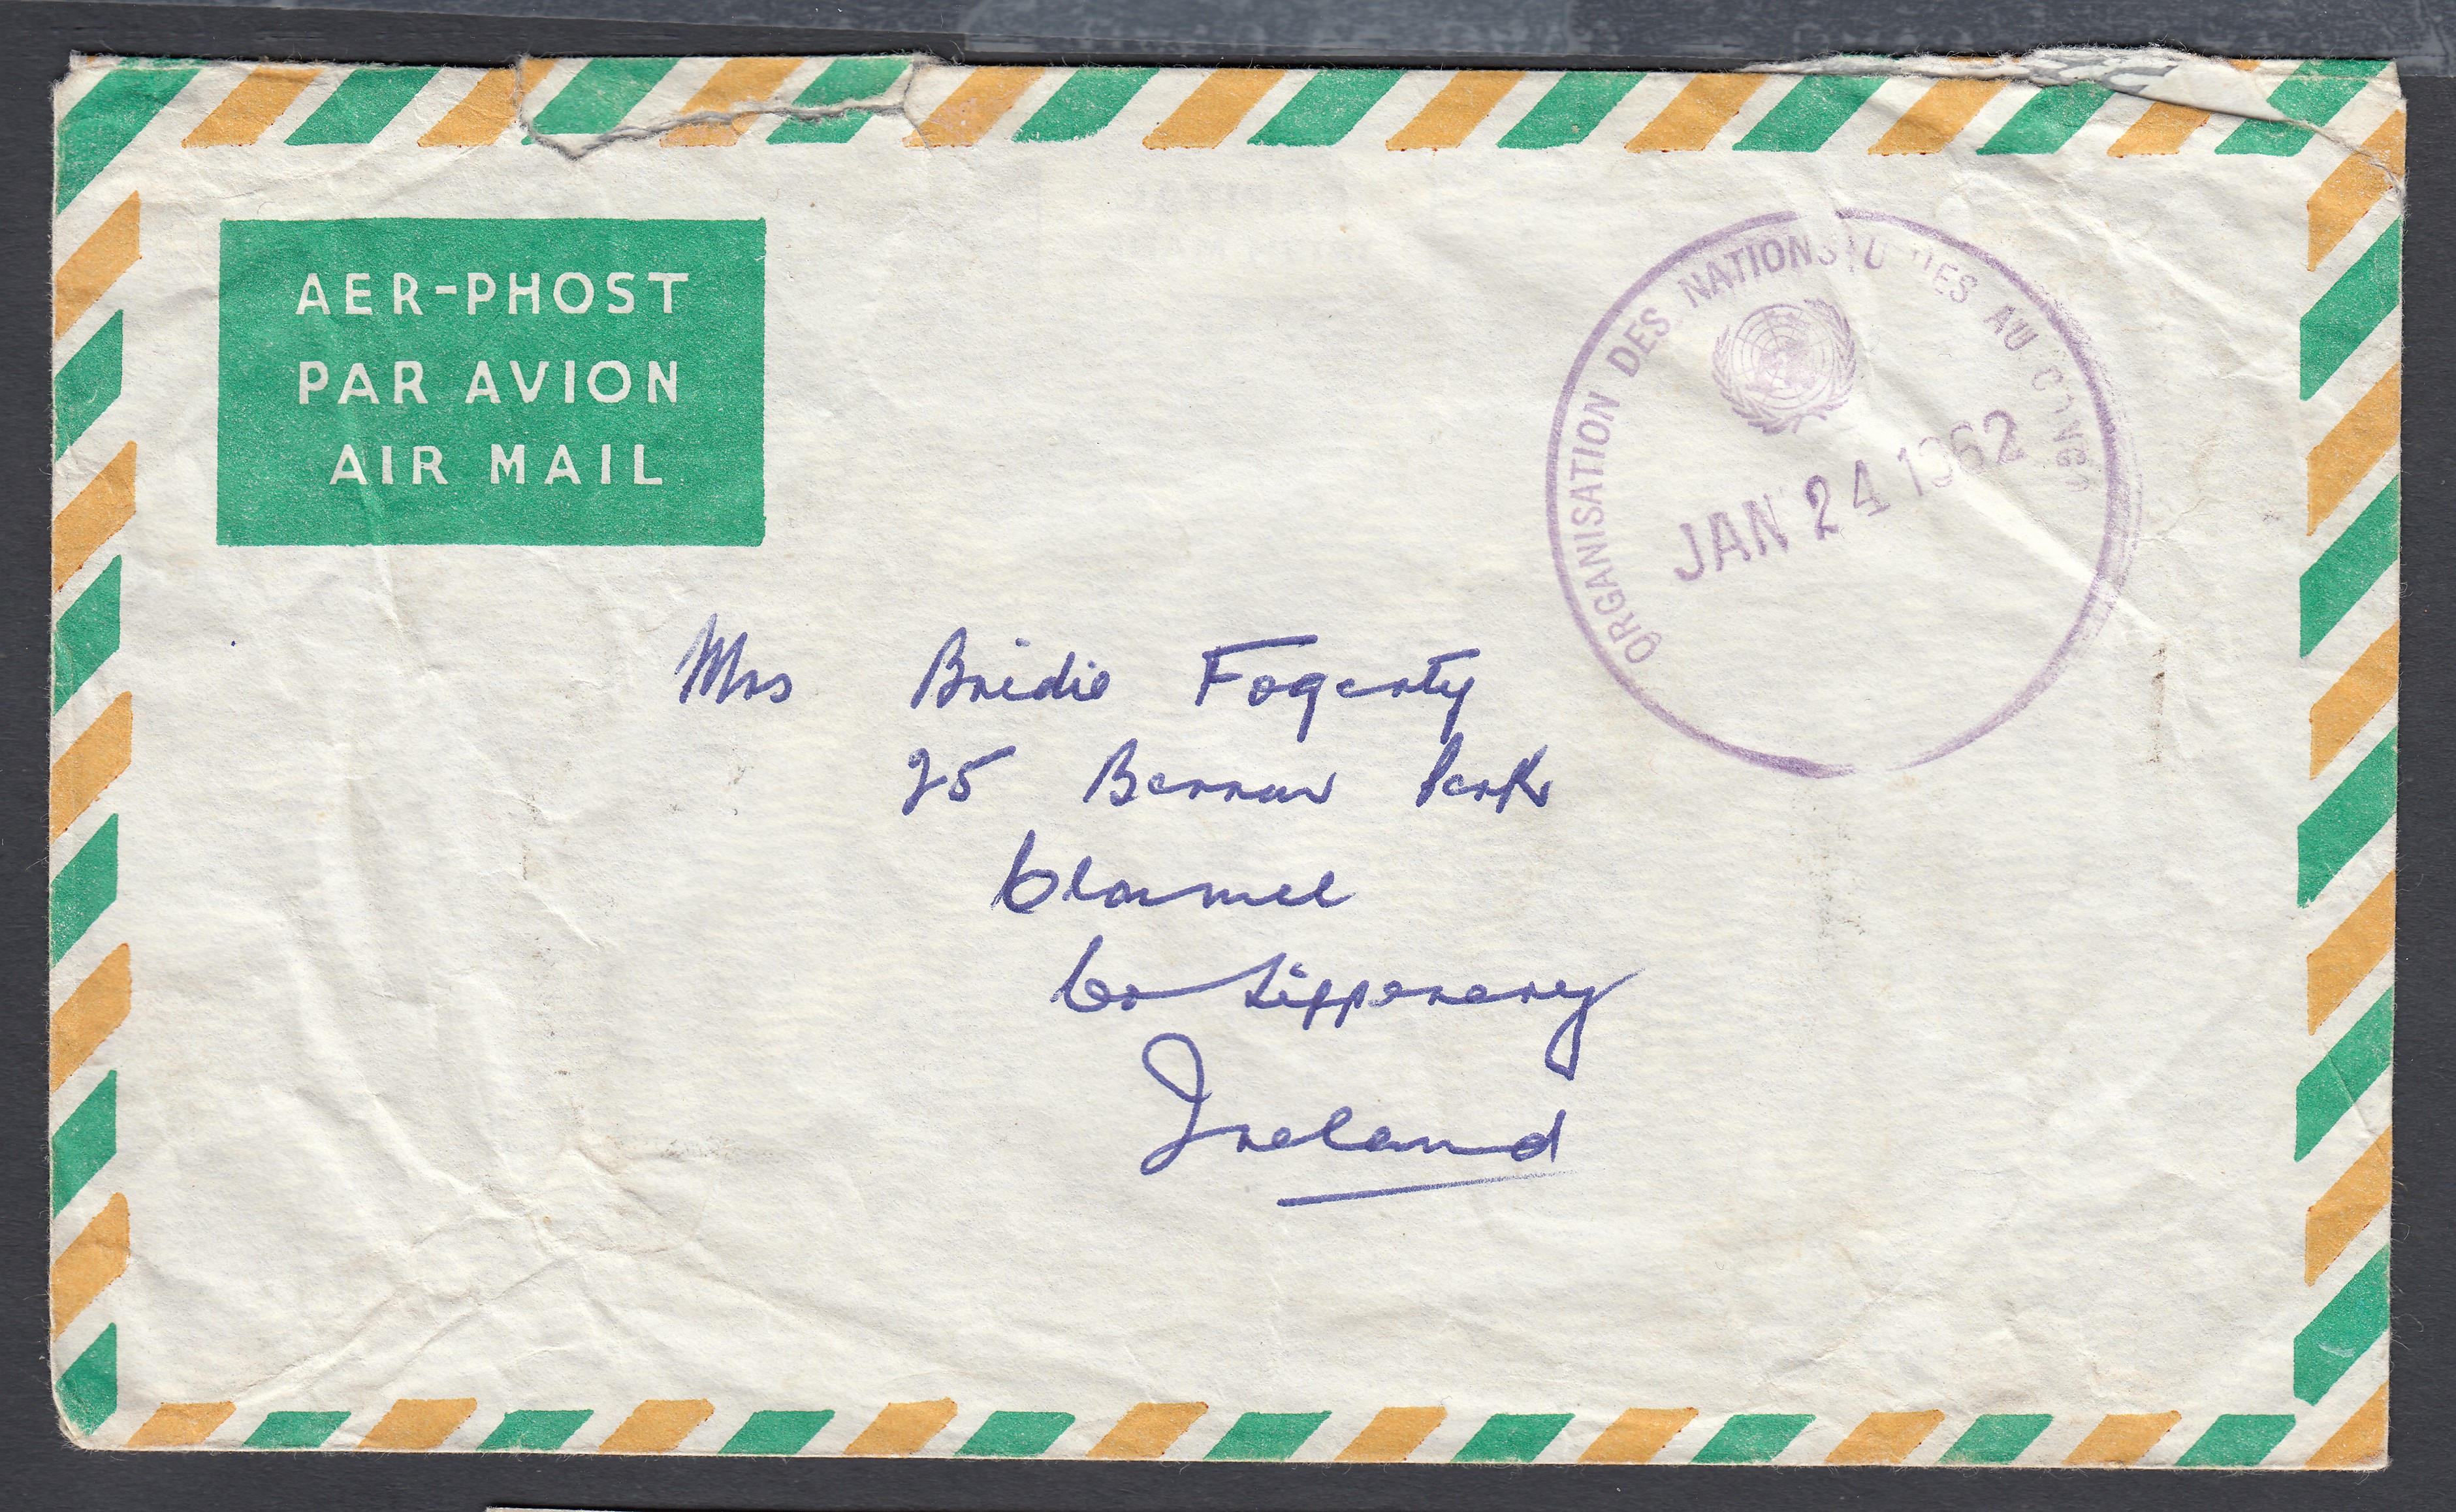 AER-PHOST
PAR AVION
AIR MAIL
ORGANISATION DES NATIONS UNIES AU CONGO
JAN 24 1962
Mrs Bridie Fogerty
25 Barrow Park
Clonmel
Co Tipperary
Ireland